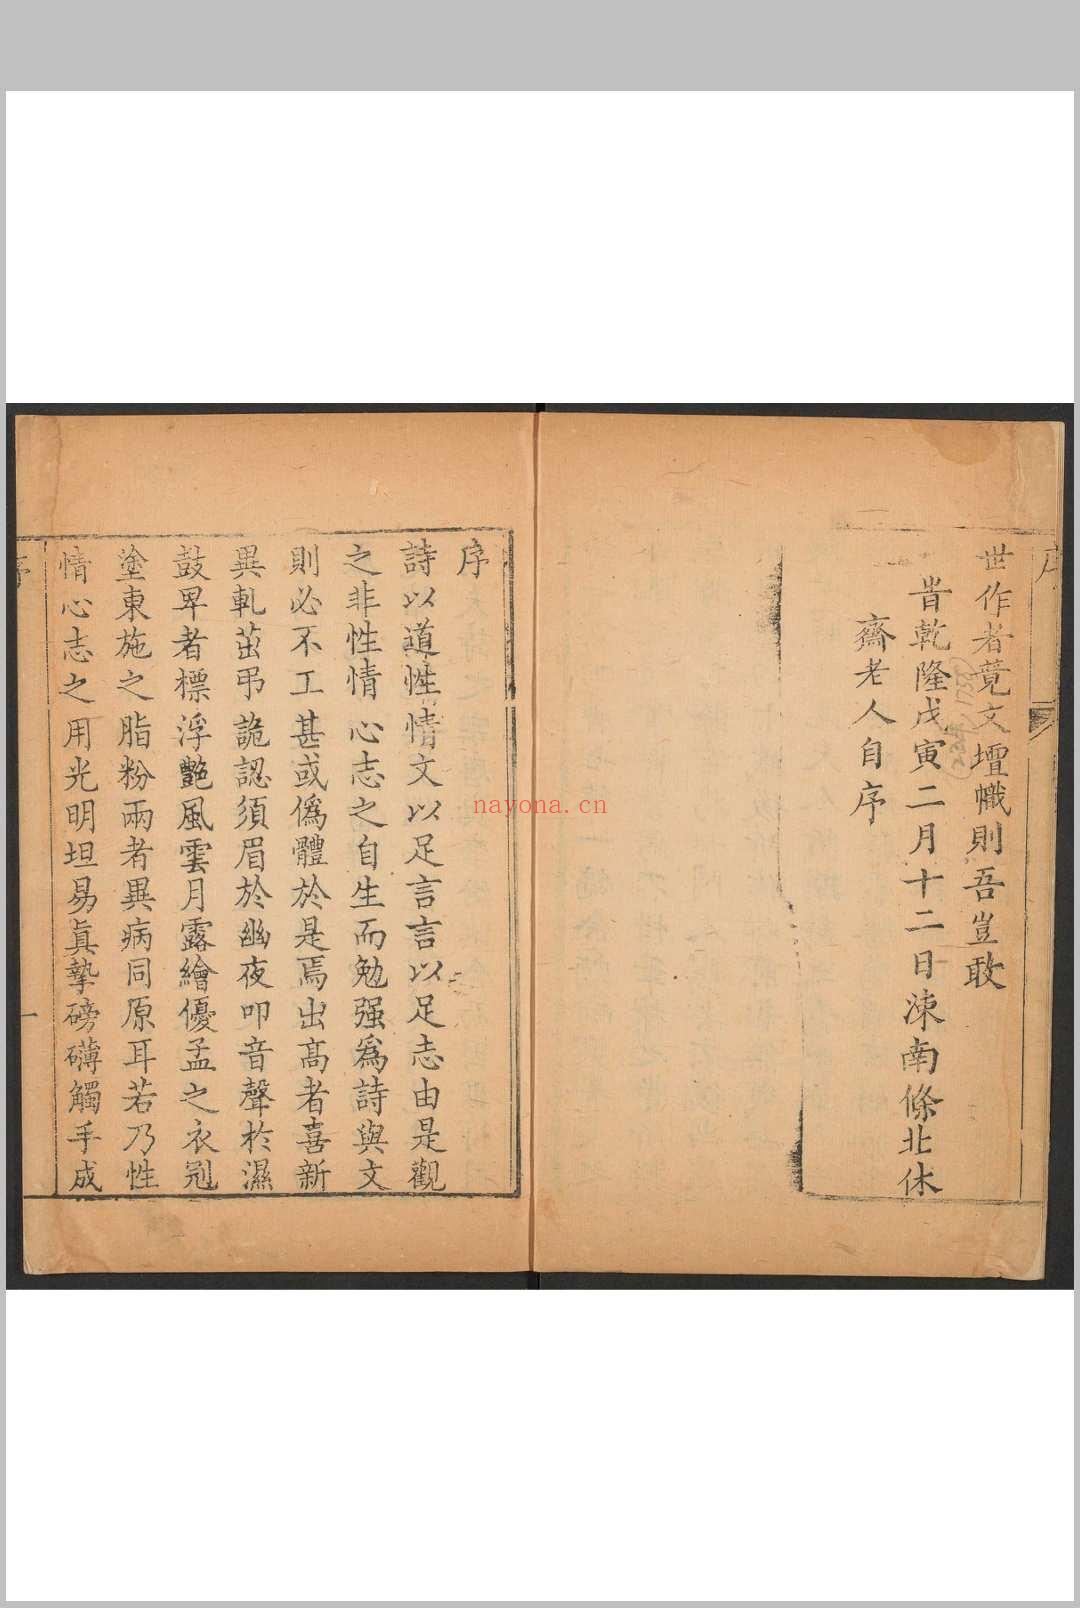 序
世作者竟文壇幟則吾豈敢
旹乾隆戊寅二月十二日涑南條北休
齋老人自序
1758
序
詩以道性情文以足言言以足志由是觀
之非性情心志之自生而勉强爲詩與文
則必不工甚或僞體於是焉出高者喜新
異軋茁弔詭認須眉於幽夜叩音聲於濕
鼓卑者標浮艷風雲月露繪優孟之衣冠
塗東施之脂粉兩者異病同原耳若乃性
情心志之用光明坦易眞摯磅礴觸手成
序
一
nayona.cn